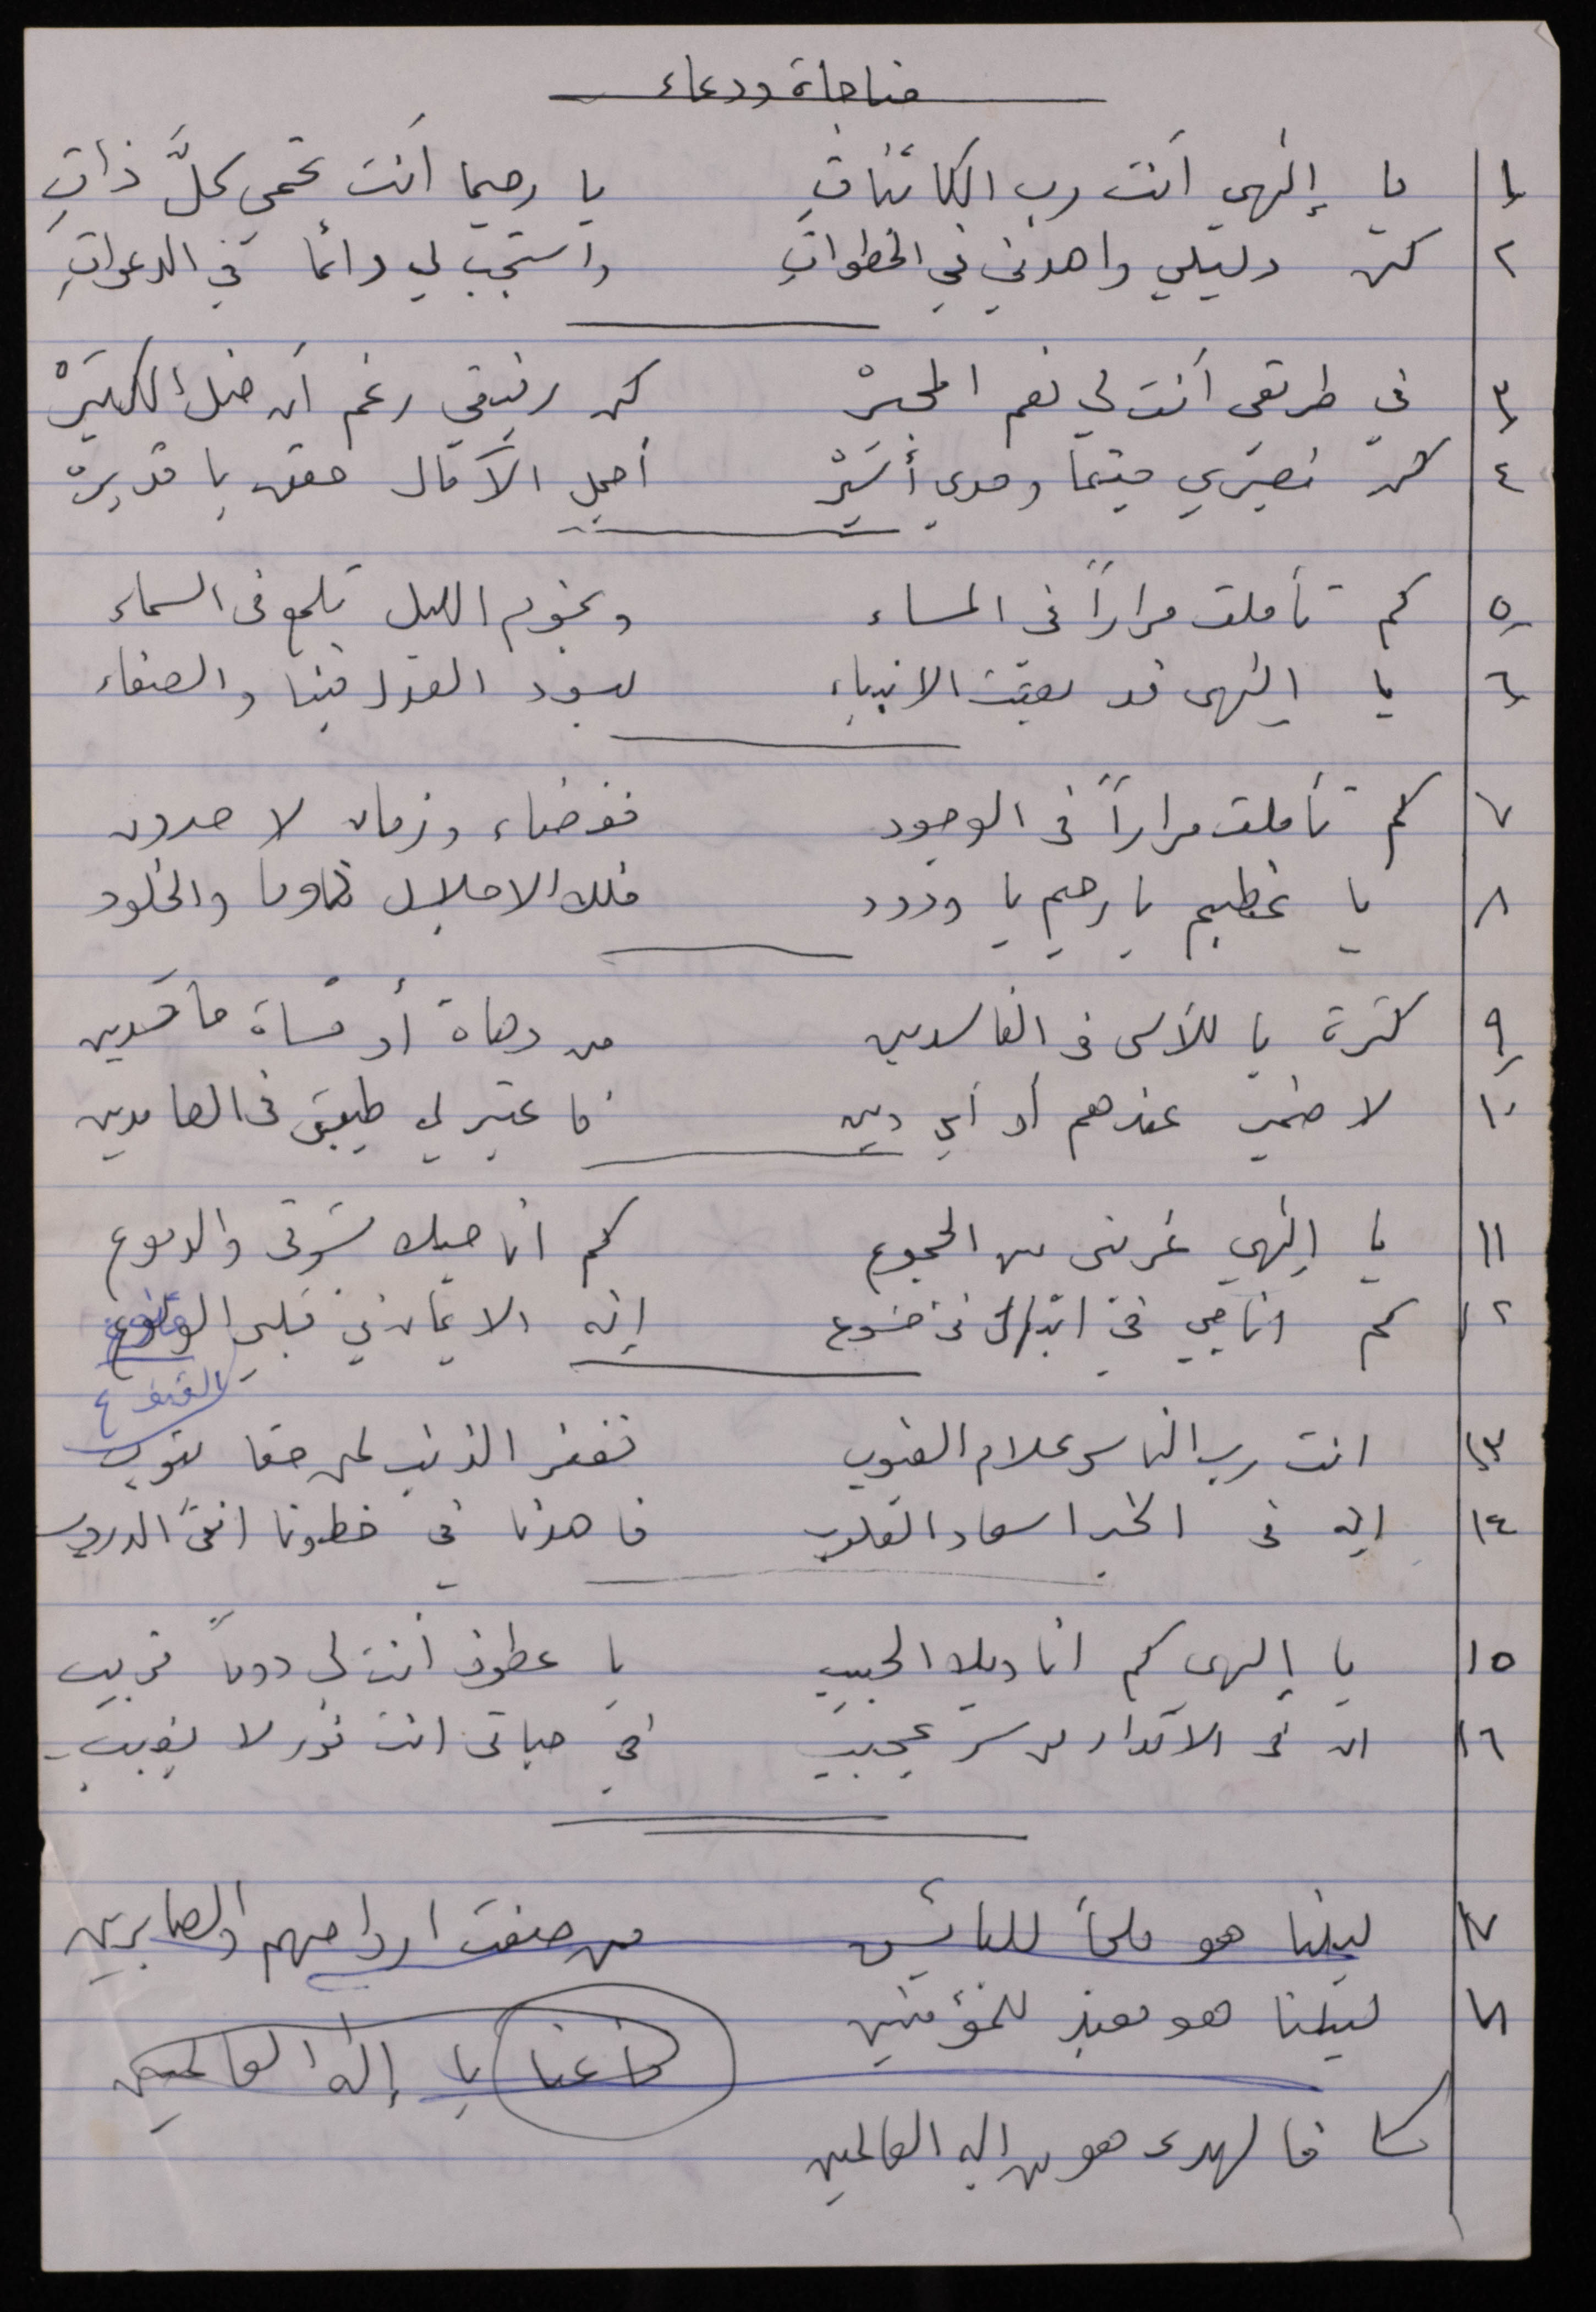 مناجاة ودعاء
١ يا إلهي أنت رب الكائنات يا رحيما أنت تحمي كلَّ ذاتِ
٢ كن دليلي واهدني في الخطواتِ واستجب لي دائما في الدعواتِ
٣ في طريقي أنت لي نعم المجيرْ كن رفيقي رغم أن ضل الكثيرْ
٤ كن نصيري حيثما وحدي أسيرْ أجمل الآمال حقق يا قديرْ
٥ كم تأملت مراراً في المساء ونجوم الليل تلمع في السماء
٦ يا إلهي قد بعثت الانبياء ليسود العدل فينا والصفاء
٧ كم تأملت مراراً في الوجود ففضاء وزمان لا حدود
٨ يا عظيم يا رحيم يا ودود فلك الاجلال دوما والخلود
٩ كثرة يا للأسى في الفاسدين من دهاة أو قساة ماكدين
١٠ لا ضمير عندهم أو أي دين فاعتبر لي طيبتي في الصامدين
١١ يا إلهي غربتي بين الجموع كم اناجيك بشوقي والدموع
١٢ كم اناجي في ابتهال في خشوع إنه الايمان في قلبي الولوع
القنوع
١٣ انت رب الناس وعلام الغيوب تغفر الذنب لمن حقا يتوب
١٤ إنه في الخير اسعاد القلوب فاهدنا في خطونا انقى الدروب
١٥ يا إلهي كم اناديك الحبيب يا عطوف أنت لي دوماً قريب
١٦ ان في الاقدار من سر عجيب في حياتي انت نور لا يغيب
١٧ ليلنا هو ملجأ لليائسين من صفت ارواحهم والصابرين
١٨ ليلنا هو معبد للمؤمنين فاعنا يا إله العالمين
كا فالهدى هو من إله العالمين